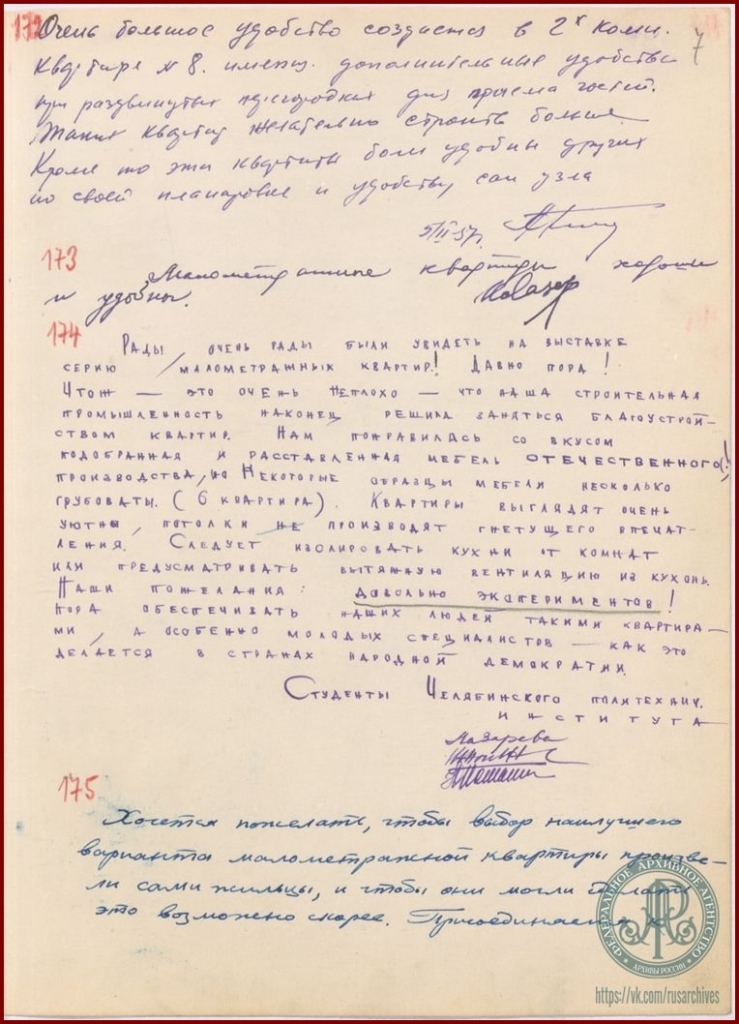 172 Очень большое удобство создается в 2х комн.
7
Квартире № 8. имеющ. дополнительные удобства
при раздвинутых перегородках для приема гостей.
Таких квартир желательно строить больше.
Кроме то эти квартиты боли удобны других
по своей планировке и удобству сан узла
5/II-57.
173
Малометражные квартиры хороши
и удобны.
174
Рады, очень рады были увидеть на выставке
серию малометражных квартир! Давно пора!
Чтож — это очень неплохо — что наша строительная
промышленность наконец решила заняться благоустрой–
ством квартир. Нам понравилась со вкусом
подобранная и расставленная мебель отечественного(!)
производства, но некоторые образцы мебели несколько
грубоваты. (6 квартира). Квартиры выглядят очень
уютны, потолки не производят гнетущего впечат–
ления. Следует изолировать кухни от комнат
или предусматривать вытяжную вентиляцию из кухонь.
Наши пожелания: довольно экспериментов!
пора обеспечивать наших людей такими квартира–
ми, а особенно молодых специалистов — как это
делается в странах народной демократии.
Студенты Челябинского политехнич.
института
Назарева
175
Хочется пожелать, чтобы выбор наилучшего
варианта малометражной квартиры произве–
ли сами жильцы, и чтобы они могли сделать
это возможно скорее. Присоединяемся к
ФЕДЕРАЛЬНОЕ АРХИВНОЕ АГЕНТСТВО
АРХИВЫ РОССИИ
https://vk.com/rusarchives